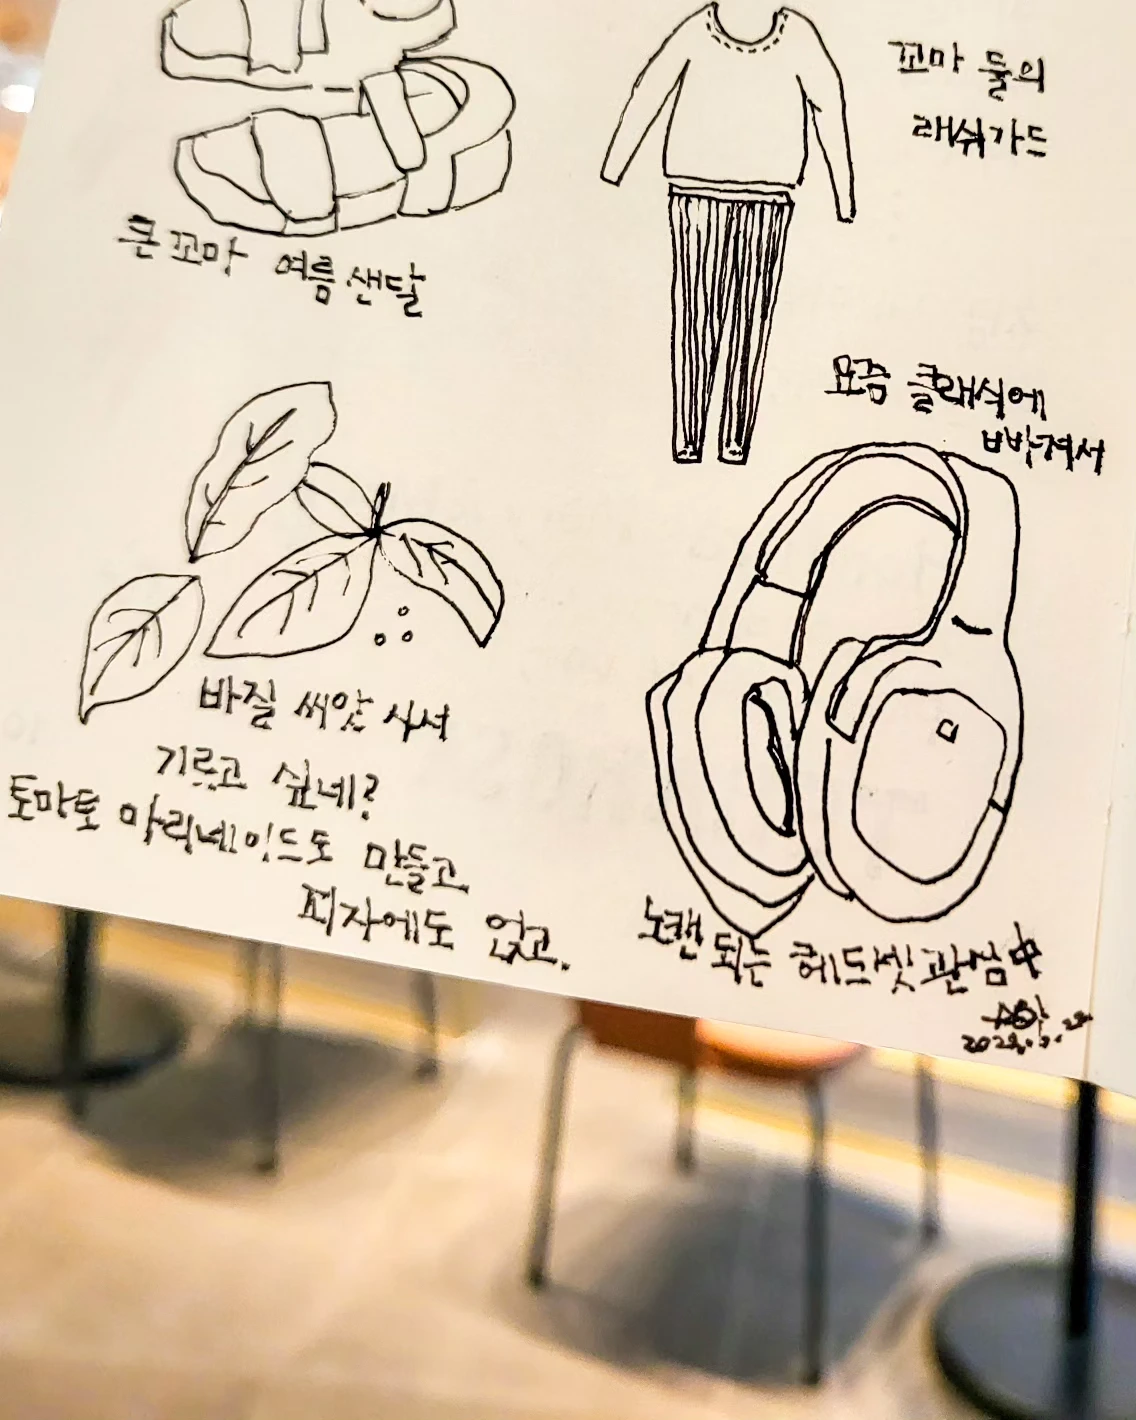 꼬마 둘의
래쉬가드
큰 꼬마 여름 샌달
요즘 클래식에
빠져서
바질 씨앗 사서
기르고 싶네?
토마토 마리네이드도 만들고
피자에도 얹고.
노캔 되는 헤드셋 관심中